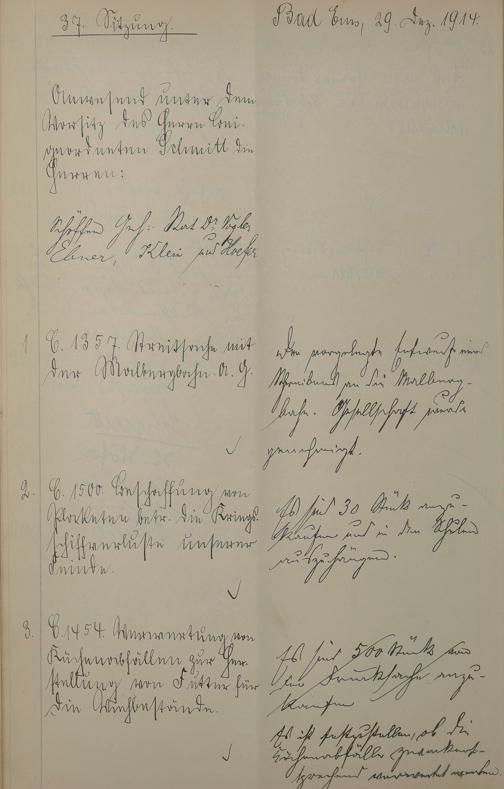 37. Sitzung.
Bad Ems, 29. Dez. 1914.
Anwesend unter dem
Vorsitz des Herrn Bei-
geordneten Schmitt die
Herren:
Schöffen Geh. Rat Dr. Vogler
Ebner, Klein und Hoefer
1 C. 1357. Streitsache mit
der Malbergbahn A. G.
Der vorgelegte Entwurf eines
Schreibens an die Malberg-
bahn-Gesellschaft wurde
genehmigt.
2. C. 1500. Beschaffung von
Plakaten betr. die Kriegs-
schiffverluste unserer
Feinde.
Es sind 30 Stück anzu-
kaufen und in den Schulen
auszuhängen.
3. C. 1454. Verwertung von
Küchenabfällen zur Her-
stellung von Futter für
die Viehbestände.
Es sind 500 Stück von
der Drucksache anzu-
kaufen
Es ist festzustellen, ob die
Küchenabfälle zweckent-
sprechend verwertet werden.